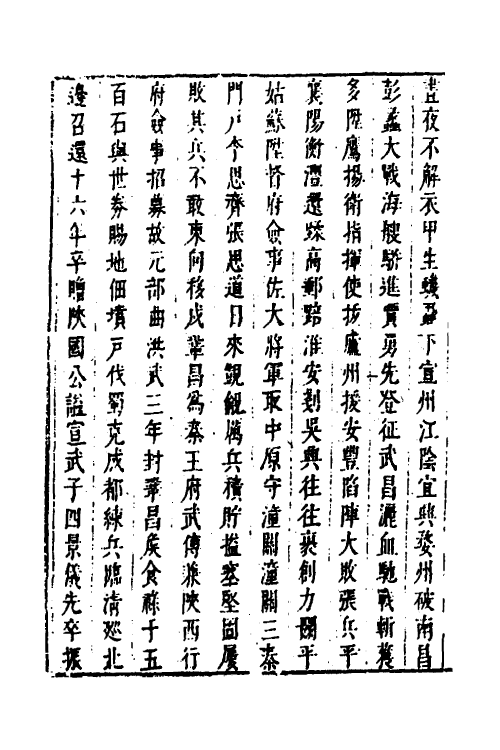 晝夜不解衣甲生蟣蝨下宣州江陰宜興婺州破南昌
彭蠡大戰海艘驕進賈勇先登征武昌灑血馳戰斬獲
多陞鷹揚衛指揮使拔廬州援安豐陷陣大敗張兵平
襄陽衡澧還蹂高郵踣淮安剗吳興往往裹創力鬪平
姑蘇陞督府僉事佐大將軍取中原守潼關潼關三秦
門戶李思齊張思道日來覬覦厲兵積貯搤塞堅固屢
敗其兵不敢東向移戍鞏昌為秦王府武傅兼陜西行
府僉事招募故元部曲洪武三年封鞏昌侯食祿千五
百石與世券賜地佃墳戶伐蜀克成都練兵臨清巡北
邊召還十六年卒贈陜國公諡宣武子四景儀先卒振